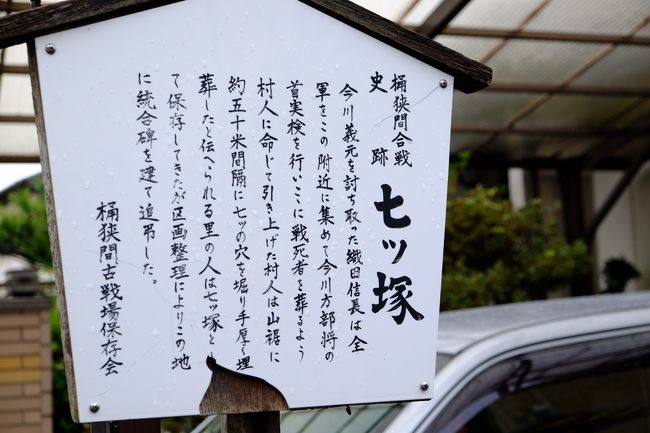 桶狭間合戦
史跡 七ッ塚
今川義元を討ち取った織田信長は全
軍をこの附近に集めて今川方部将の
首実検を行いここに戦死者を葬るよう
村人に命じて引き上げた村人は山裾に
約五十米間隔に七ッの穴を堀り手厚く埋
葬したと伝へられる里の人は七ッ塚とし
て保存してきたが区画整理によりこの地
に統合碑を建て追弔した。
桶狭間古戦場保存会